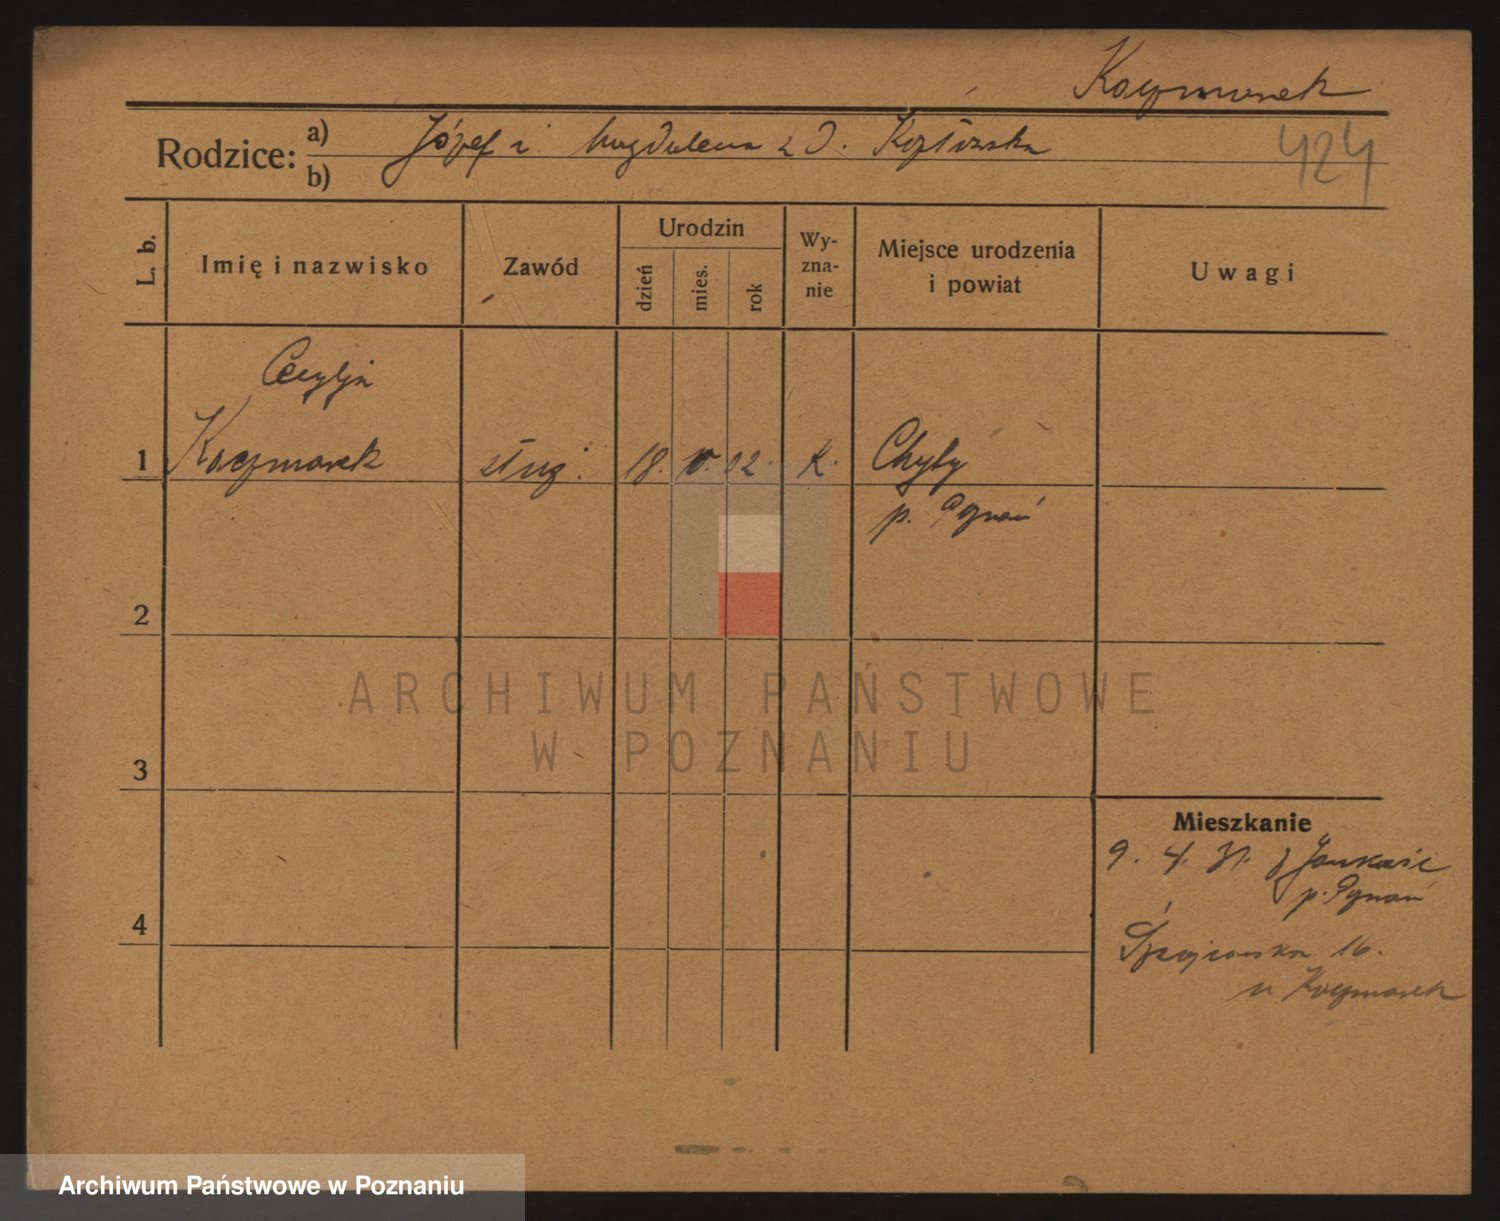 Kaczmarek
Rodzice:
a) Józef i Magdalena z D. Kozłowska
b)
424
L. b.
Imię i nazwisko
Zawód
Urodzin
dzień
mies.
rok
Wy-
zna-
nie
Miejsce urodzenia
i powiat
Uwagi
Cecylja
1 Kaczmarek służ. 18. V. 12. k. Chyby
p. Poznań
2
3
4
ARCHIWUM PAŃSTWOWE
W POZNANIU
Mieszkanie
9. 4. 31. z
p. Poznań
16.
u Kaczmarek
Archiwum Państwowe w Poznaniu